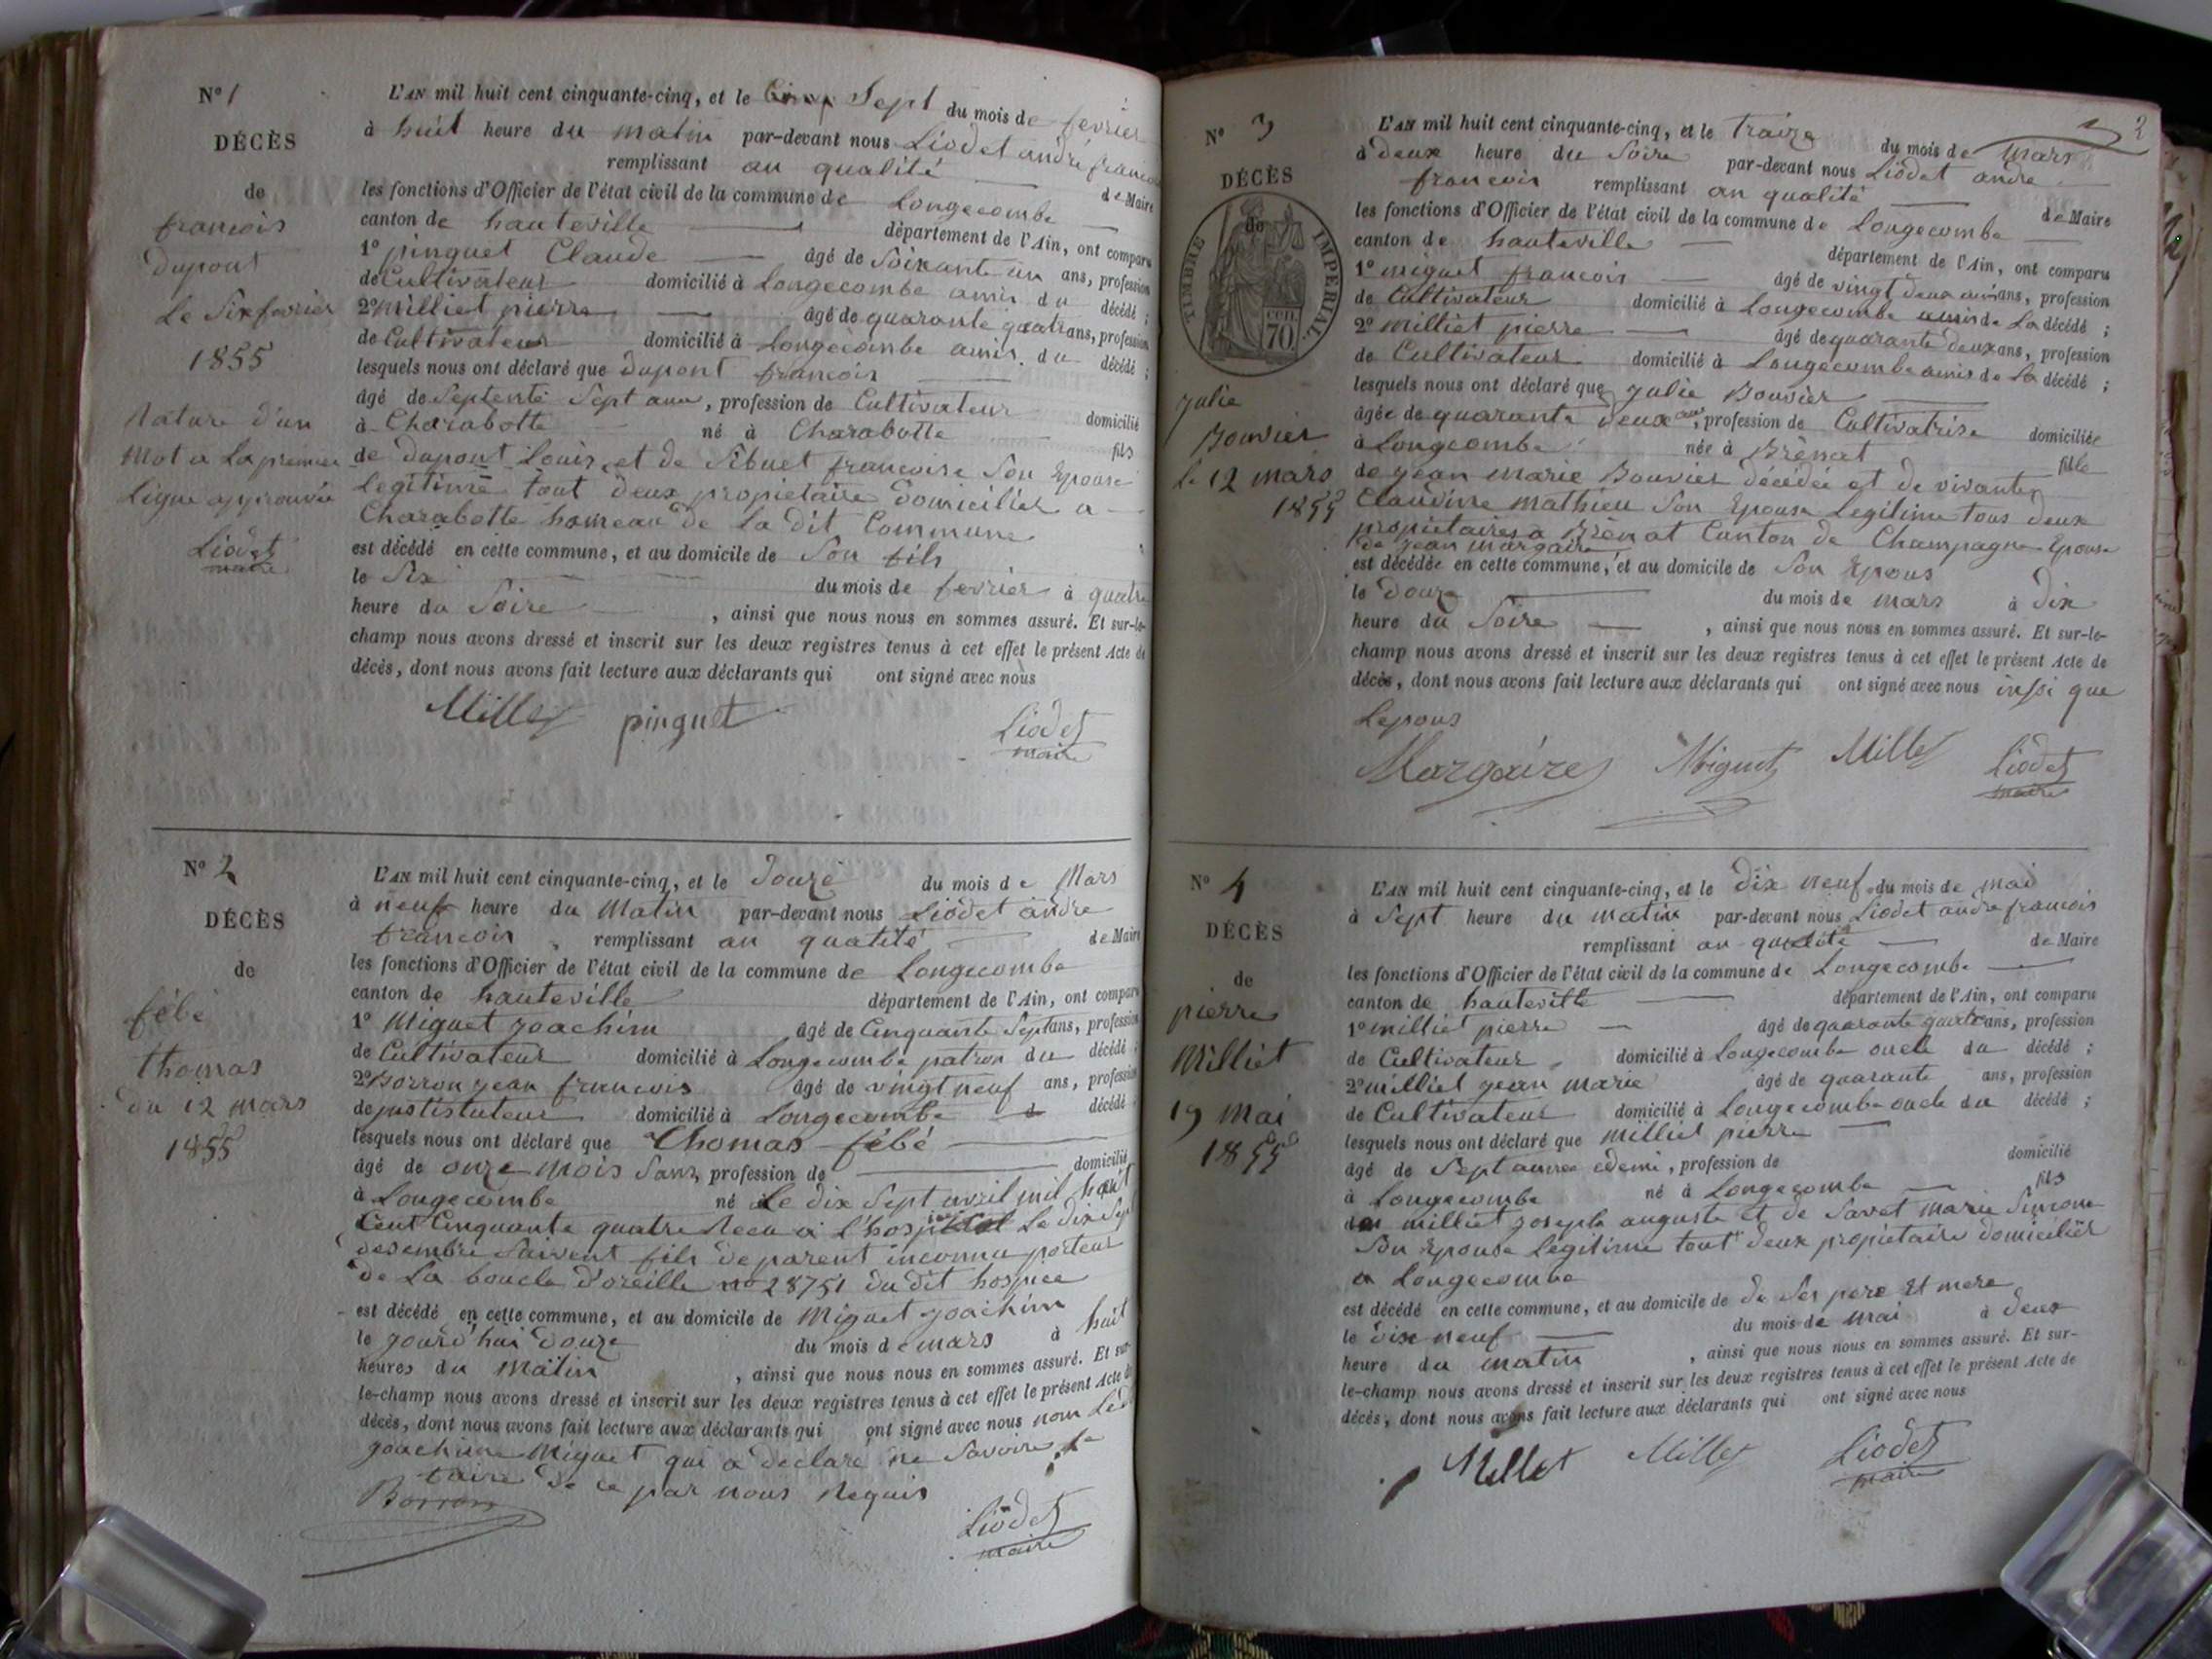 N° 1
DÉCÈS
de
francois
dupont
Le Six fevrier
1855
Nature d'un
Mot a La premiere
Ligne approuvée
Liodet
maire
L'AN mil huit cent cinquante-cinq, et le Sept du mois de fevrier
à huit heure du matin par-devant nous Liodet andré francois
remplissant an qualité de Maire
les fonctions d'Officier de l'état civil de la commune de Longecombe
canton de hauteville département de l'Ain, ont comparu
1° pinguet Claude âgé de Soixante un ans, profession
de Cultivateur domicilié à Longecombe amis du décédé ;
2° Milliet pierre âgé de quarante quatre ans, profession
de Cultivateur domicilié à Longecombe amis du décédé ;
lesquels nous ont déclaré que dupont francois
âgé de Septente Sept ans, profession de Cultivateur domicilié
à Charabotte né à Charabotte fils
de dupont Louis et de Sibuet francoise Son Epouse
Legitime tout deux propietaire domiciliés a
Charabotte hameau de La dit Commune
est décédé en cette commune, et au domicile de Son fils
le Six du mois de fevrier à quatre
heure du Soire , ainsi que nous nous en sommes assuré. Et sur-le-
champ nous avons dressé et inscrit sur les deux registres tenus à cet effet le présent Acte de
décès, dont nous avons fait lecture aux déclarants qui ont signé avec nous
Milliet pinguet Liodet
maire
N° 2
DÉCÈS
de
fébé
thomas
du 12 mars
1855
L'AN mil huit cent cinquante-cinq, et le douze du mois de Mars
à neuf heure du Matin par-devant nous Liodet andre
francois remplissant an qualité de Maire
les fonctions d'Officier de l'état civil de la commune de Longecombe
canton de hauteville département de l'Ain, ont comparu
1° Miguet joachim âgé de Cinquante Sept ans, profession
de Cultivateur domicilié à Longecombe patron du décédé ;
2° Borron jean francois âgé de vingt neuf ans, profession
de justistuteur domicilié à Longecombe décédé
lesquels nous ont déclaré que Thomas fébé
âgé de onze mois Sans, profession de domicilié
à Longecombe né Le dix Sept avril mil huit
Cent Cinquante quatre Recu a l'hospital Le dix Sept
desembre Suivent fils de parent inconnu porteur
de La boucle d'oreille no 28751 du dit hospice
est décédé en cette commune, et au domicile de Miguet joachim
le jourd'hui douze du mois de mars à huit
heures du Matin , ainsi que nous nous en sommes assuré. Et sur-
le-champ nous avons dressé et inscrit sur les deux registres tenus à cet effet le présent Acte de
décès, dont nous avons fait lecture aux déclarants qui ont signé avec nous non Led
joachime Miguet qui a declaré ne Savoire Le
faire de ce par nous Requis
Borron
Liodet
maire
2
N° 3
DÉCÈS
de
TIMBRE IMPÉRIAL.
cen.
70
julie
Bouvier
le 12 mars
1855
L'AN mil huit cent cinquante-cinq, et le traize du mois de mars
à deux heure du Soire par-devant nous Liodet andre
francois remplissant an qualité de Maire
les fonctions d'Officier de l'état civil de la commune de Longecombe
canton de hauteville département de l'Ain, ont comparu
1° miguet francois âgé de vingt deux ans, profession
de Cultivateur domicilié à Longecombe amis de La décédé ;
2° milliet pierre âgé de quarante deux ans, profession
de Cultivateur domicilié à Longecombe amis de La décédé ;
lesquels nous ont déclaré que julie Bouvier
âgée de quarante deux ans, profession de Cultivatrise domiciliée
à Longecombe née à Brénat fille
de jean marie Bouvier décédée et de vivante
Claudine mathieu Son Epouse Legitime tous deux
propietaires a Brénat Canton de Champagne Epouse
de jean margaire
est décédée en cette commune, et au domicile de Son Epous
le douze du mois de mars à dix
heure du Soire , ainsi que nous nous en sommes assuré. Et sur-le-
champ nous avons dressé et inscrit sur les deux registres tenus à cet effet le présent Acte de
décès, dont nous avons fait lecture aux déclarants qui ont signé avec nous inssi que
Lepous
Margaire Miguet Milliet Liodet
maire
N° 4
DÉCÈS
de
pierre
Milliet
19 mai
1855
L'AN mil huit cent cinquante-cinq, et le dix neuf du mois de mai
à Sept heure du matin par-devant nous Liodet andre francois
remplissant an qualité de Maire
les fonctions d'Officier de l'état civil de la commune de Longecombe
canton de hauteville département de l'Ain, ont comparu
1° milliet pierre âgé de quarante quatre ans, profession
de Cultivateur domicilié à Longecombe oncle du décédé ;
2° milliet jean marie âgé de quarante ans, profession
de Cultivateur domicilié à Longecombe oncle du décédé ;
lesquels nous ont déclaré que milliet pierre
âgé de Sept années edemi, profession de domicilié
à Longecombe né à Longecombe fils
milliet joseph auguste et de Savet marie Simone
Son Epouse Legitime tout deux propietaire domiciliés
a Longecombe
est décédé en cette commune, et au domicile de de Ses pere Et mere
le dix neuf du mois de mai à deux
heure du matin , ainsi que nous nous en sommes assuré. Et sur-
le-champ nous avons dressé et inscrit sur les deux registres tenus à cet effet le présent Acte de
décès, dont nous avons fait lecture aux déclarants qui ont signé avec nous
Milliet Milliet Liodet
maire